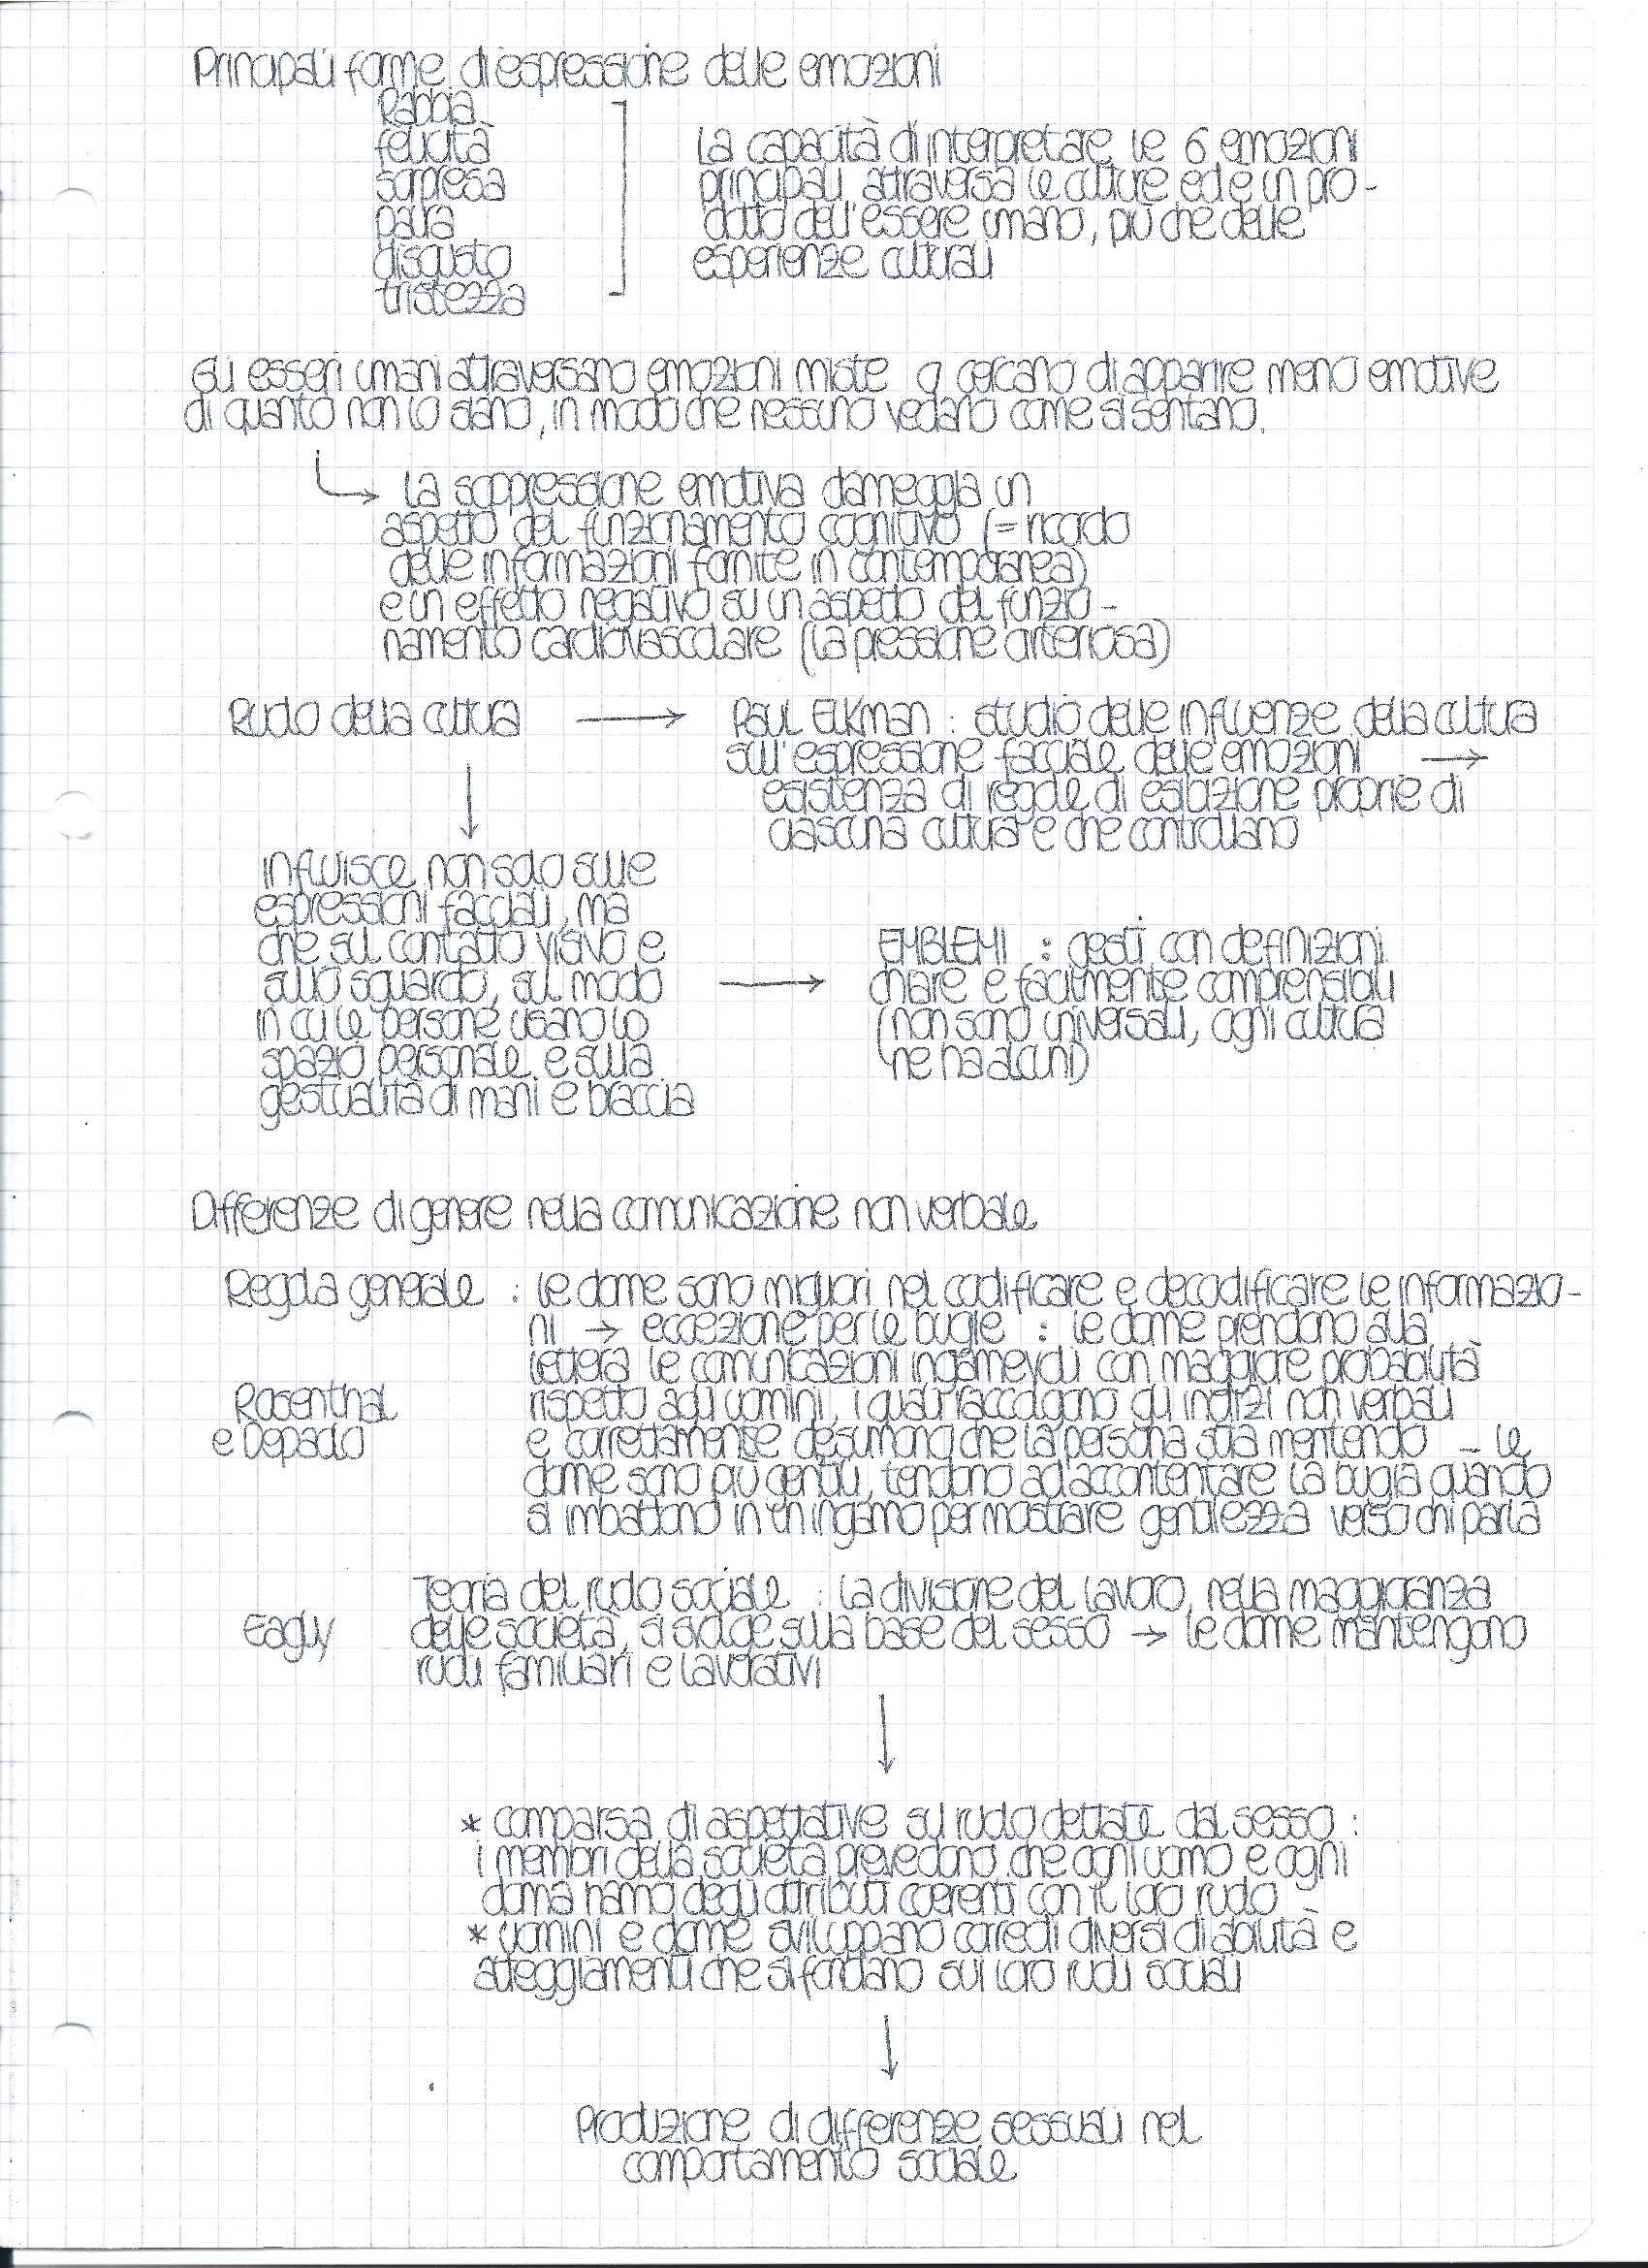 Principali forme di espressione delle emozioni
Rabbia
felicità
sorpresa
paura
disgusto
tristezza
La capacità di interpretare le 6 emozioni
principali attraversa le culture ed è un pro-
dotto dell'essere umano, più che delle
esperienze culturali
Gli esseri umani attraversano emozioni miste o cercano di apparire meno emotive
di quanto non lo siano, in modo che nessuno vedano come si sentano.
→ La soppressione emotiva danneggia un
aspetto del funzionamento cognitivo (= ricordo
delle informazioni fornite in contemporanea)
e un effetto negativo su un aspetto del funzio-
namento cardiovascolare (la pressione arteriosa)
Ruolo della cultura → Paul Elkman : studio delle influenze della cultura
sull'espressione facciale delle emozioni →
esistenza di regole di esibizione proprie di
ciascuna cultura e che controllano
↓
influisce non solo sulle
espressioni facciali, ma
che sul contatto visivo e
sullo sguardo, sul modo
in cui le persone usano lo
spazio personale e sulla
gestualità di mani e braccia
→ EMBLEMI : gesti con definizioni
chiare e facilmente comprensibili
(non sono universali, ogni cultura
ne ha alcuni)
Differenze di genere nella comunicazione non verbale
Regola generale : le donne sono migliori nel codificare e decodificare le informazio-
ni → eccezione per le bugie : le donne prendono alla
lettera le comunicazioni ingannevoli con maggiore probabilità
rispetto agli uomini, i quali raccolgono gli indizi non verbali
e correttamente desumono che la persona stia mentendo - le
donne sono più gentili, tendono ad accontentare la bugia quando
si imbattono in un inganno per mostrare gentilezza verso chi parla
Rosenthal
e Depaolo
Eagly
Teoria del ruolo sociale : la divisione del lavoro, nella maggioranza
delle società, si svolge sulla base del sesso → le donne mantengono
ruoli familiari e lavorativi
↓
* comparsa di aspettative sul ruolo dettate dal sesso :
i membri della società prevedono che ogni uomo e ogni
donna hanno degli attributi coerenti con il loro ruolo
* uomini e donne sviluppano corredi diversi di abilità e
atteggiamenti che si fondano sui loro ruoli sociali
↓
Produzione di differenze sessuali nel
comportamento sociale